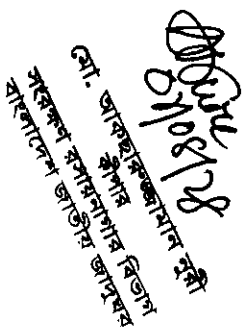 ০৭।০৪।২৪
মো. আকছারুজ্জামান নূরী
কীপার
সংরক্ষণ রসায়নাগার বিভাগ
বাংলাদেশ জাতীয় জাদুঘর